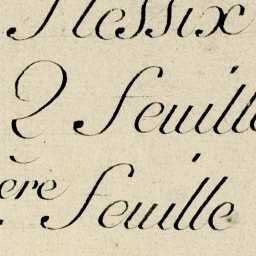 Plessix
2 feuille
ère feuille